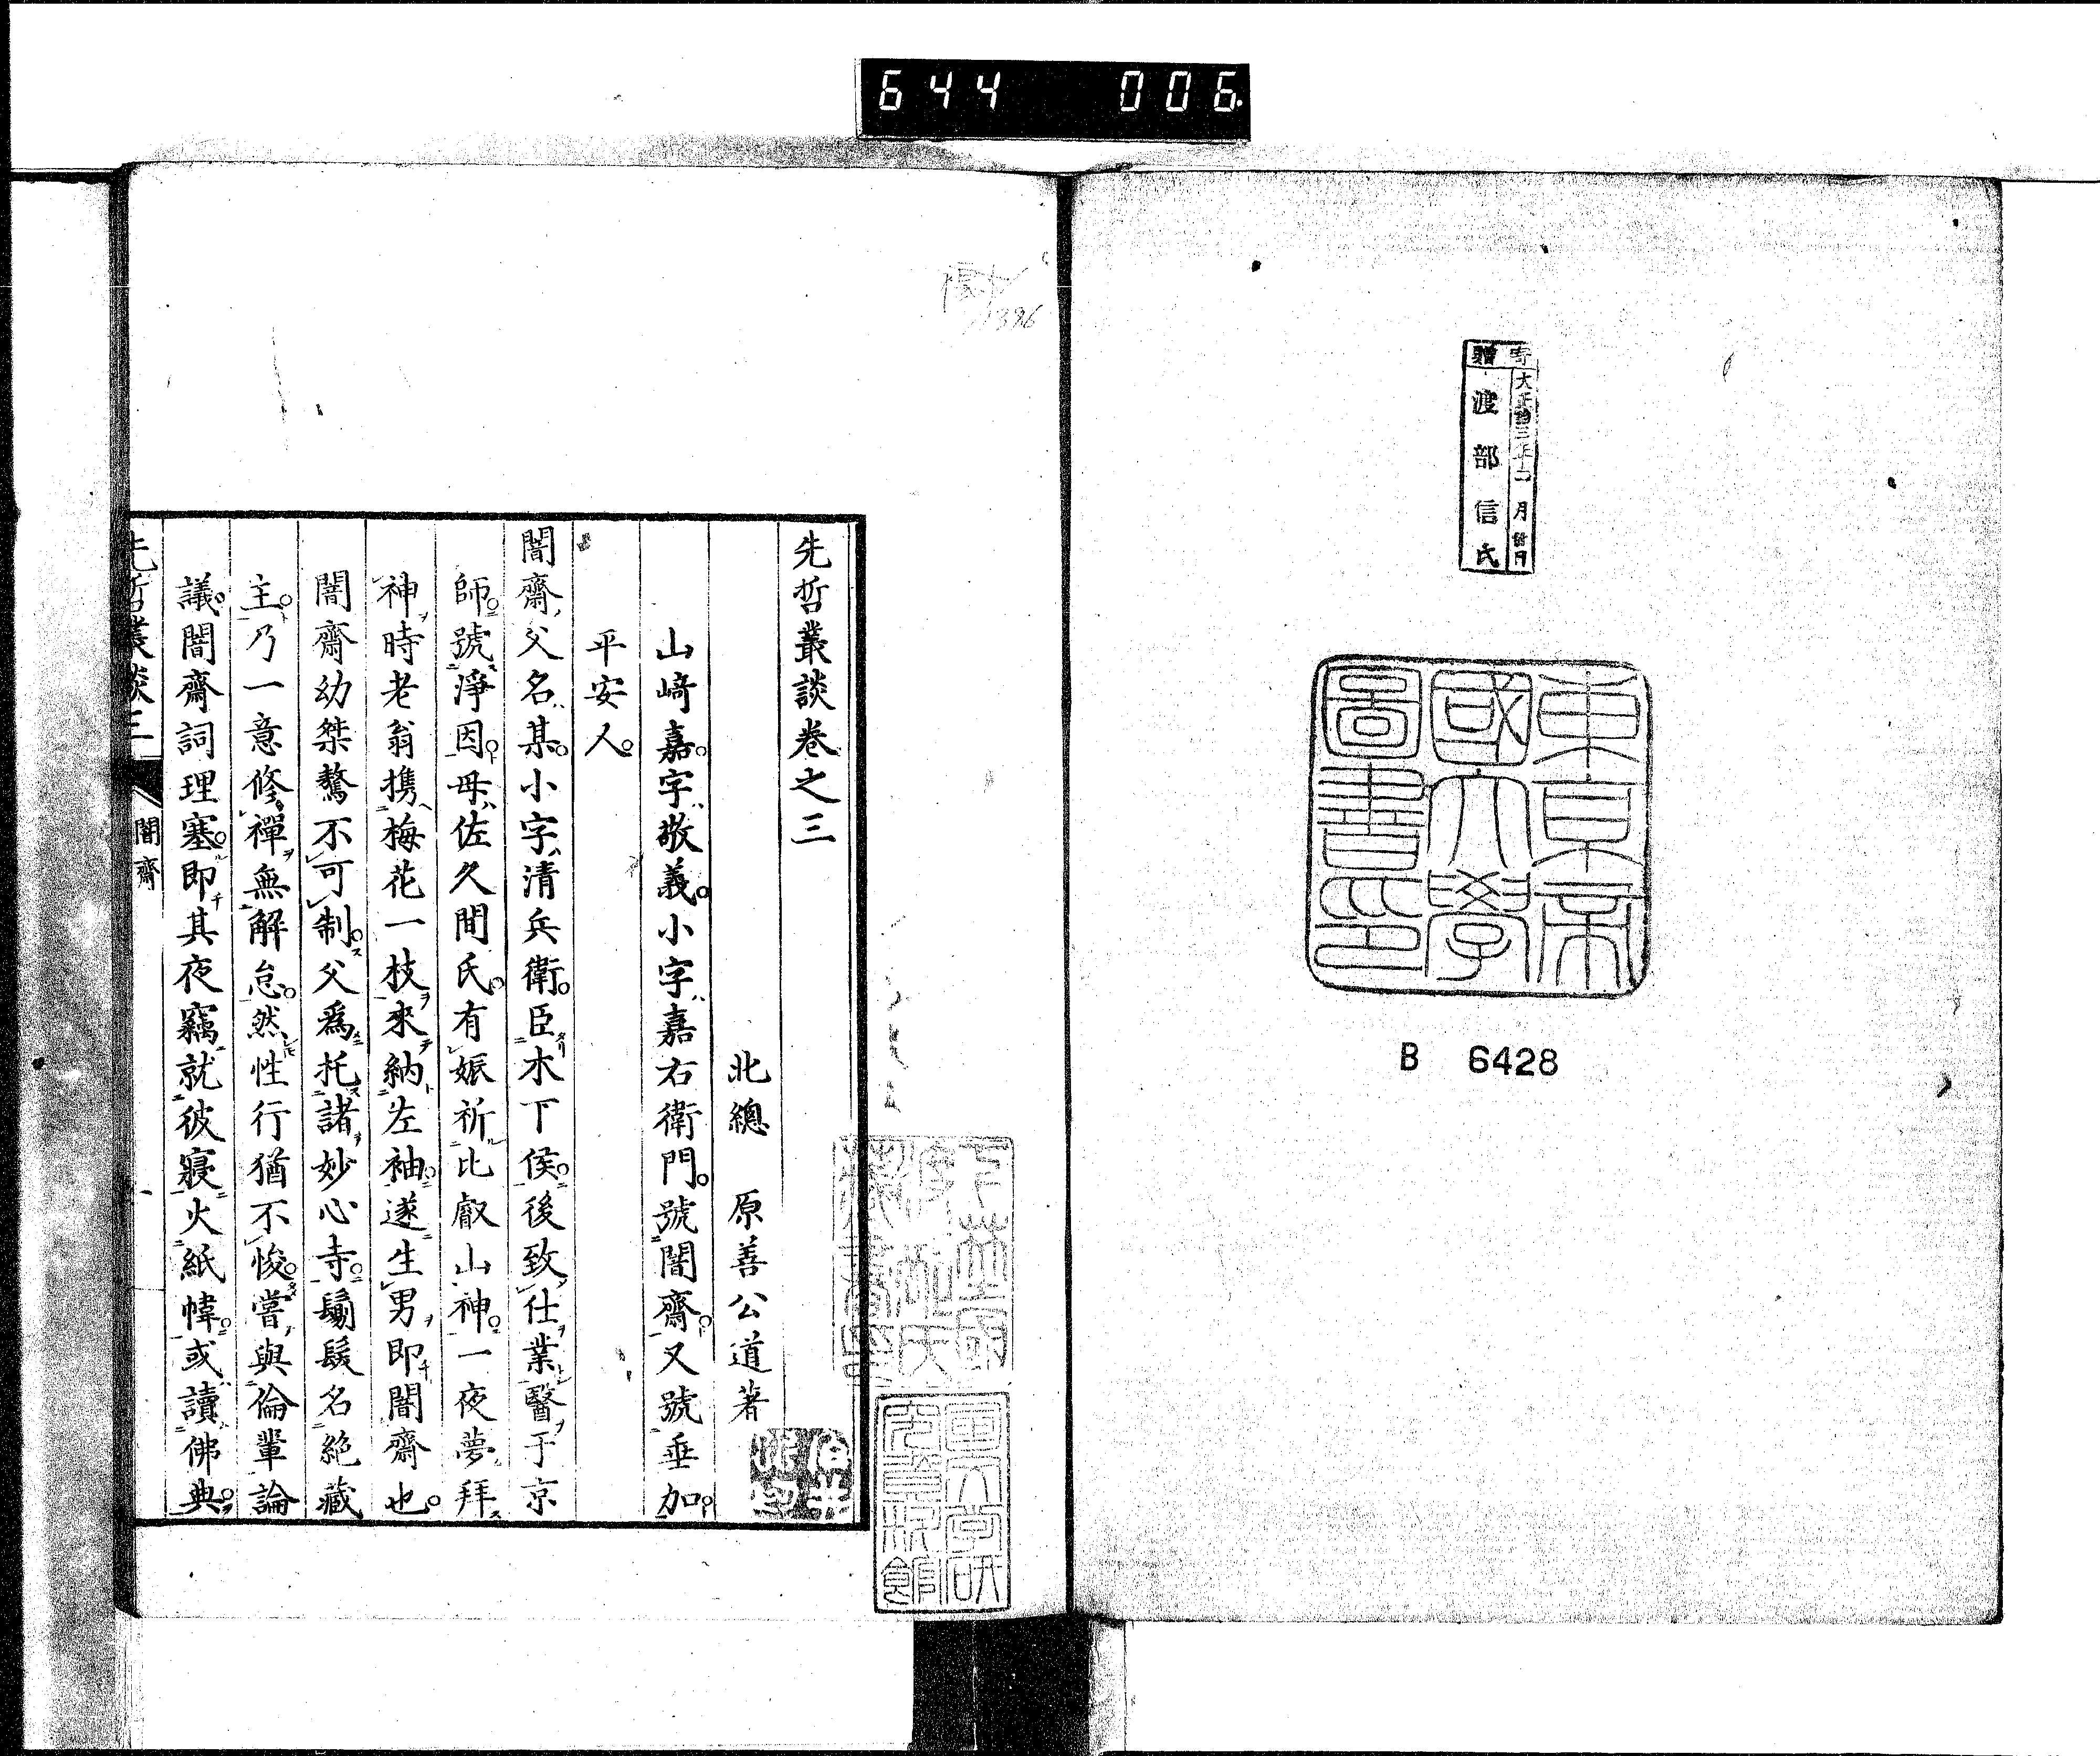 644 006
寄贈
大正拾三年一月廿日
渡部信氏
東京帝
國大學
圖書印
B 6428
1396
先哲叢談卷之三
北總 原善公道著
山﨑嘉。字敬義。小字嘉右衛門。號闇齋。又號垂加。
平安人。
闇齋父名某。小字清兵衛。臣木下侯。後致仕業醫于京
師。號淨因。母佐久間氏。有娠祈比叡山神。一夜夢拜
神時老翁携梅花一枝來納左袖。遂生男。即闇齋也。
闇齋幼桀驁不可制。父爲托諸妙心寺。鬀髮名絕藏
主。乃一意修禪無解怠。然性行猶不悛。嘗與倫輩論
議。闇齋詞理塞。即其夜竊就彼寢火紙幃。或讀佛典。
先哲叢談三
闇齋